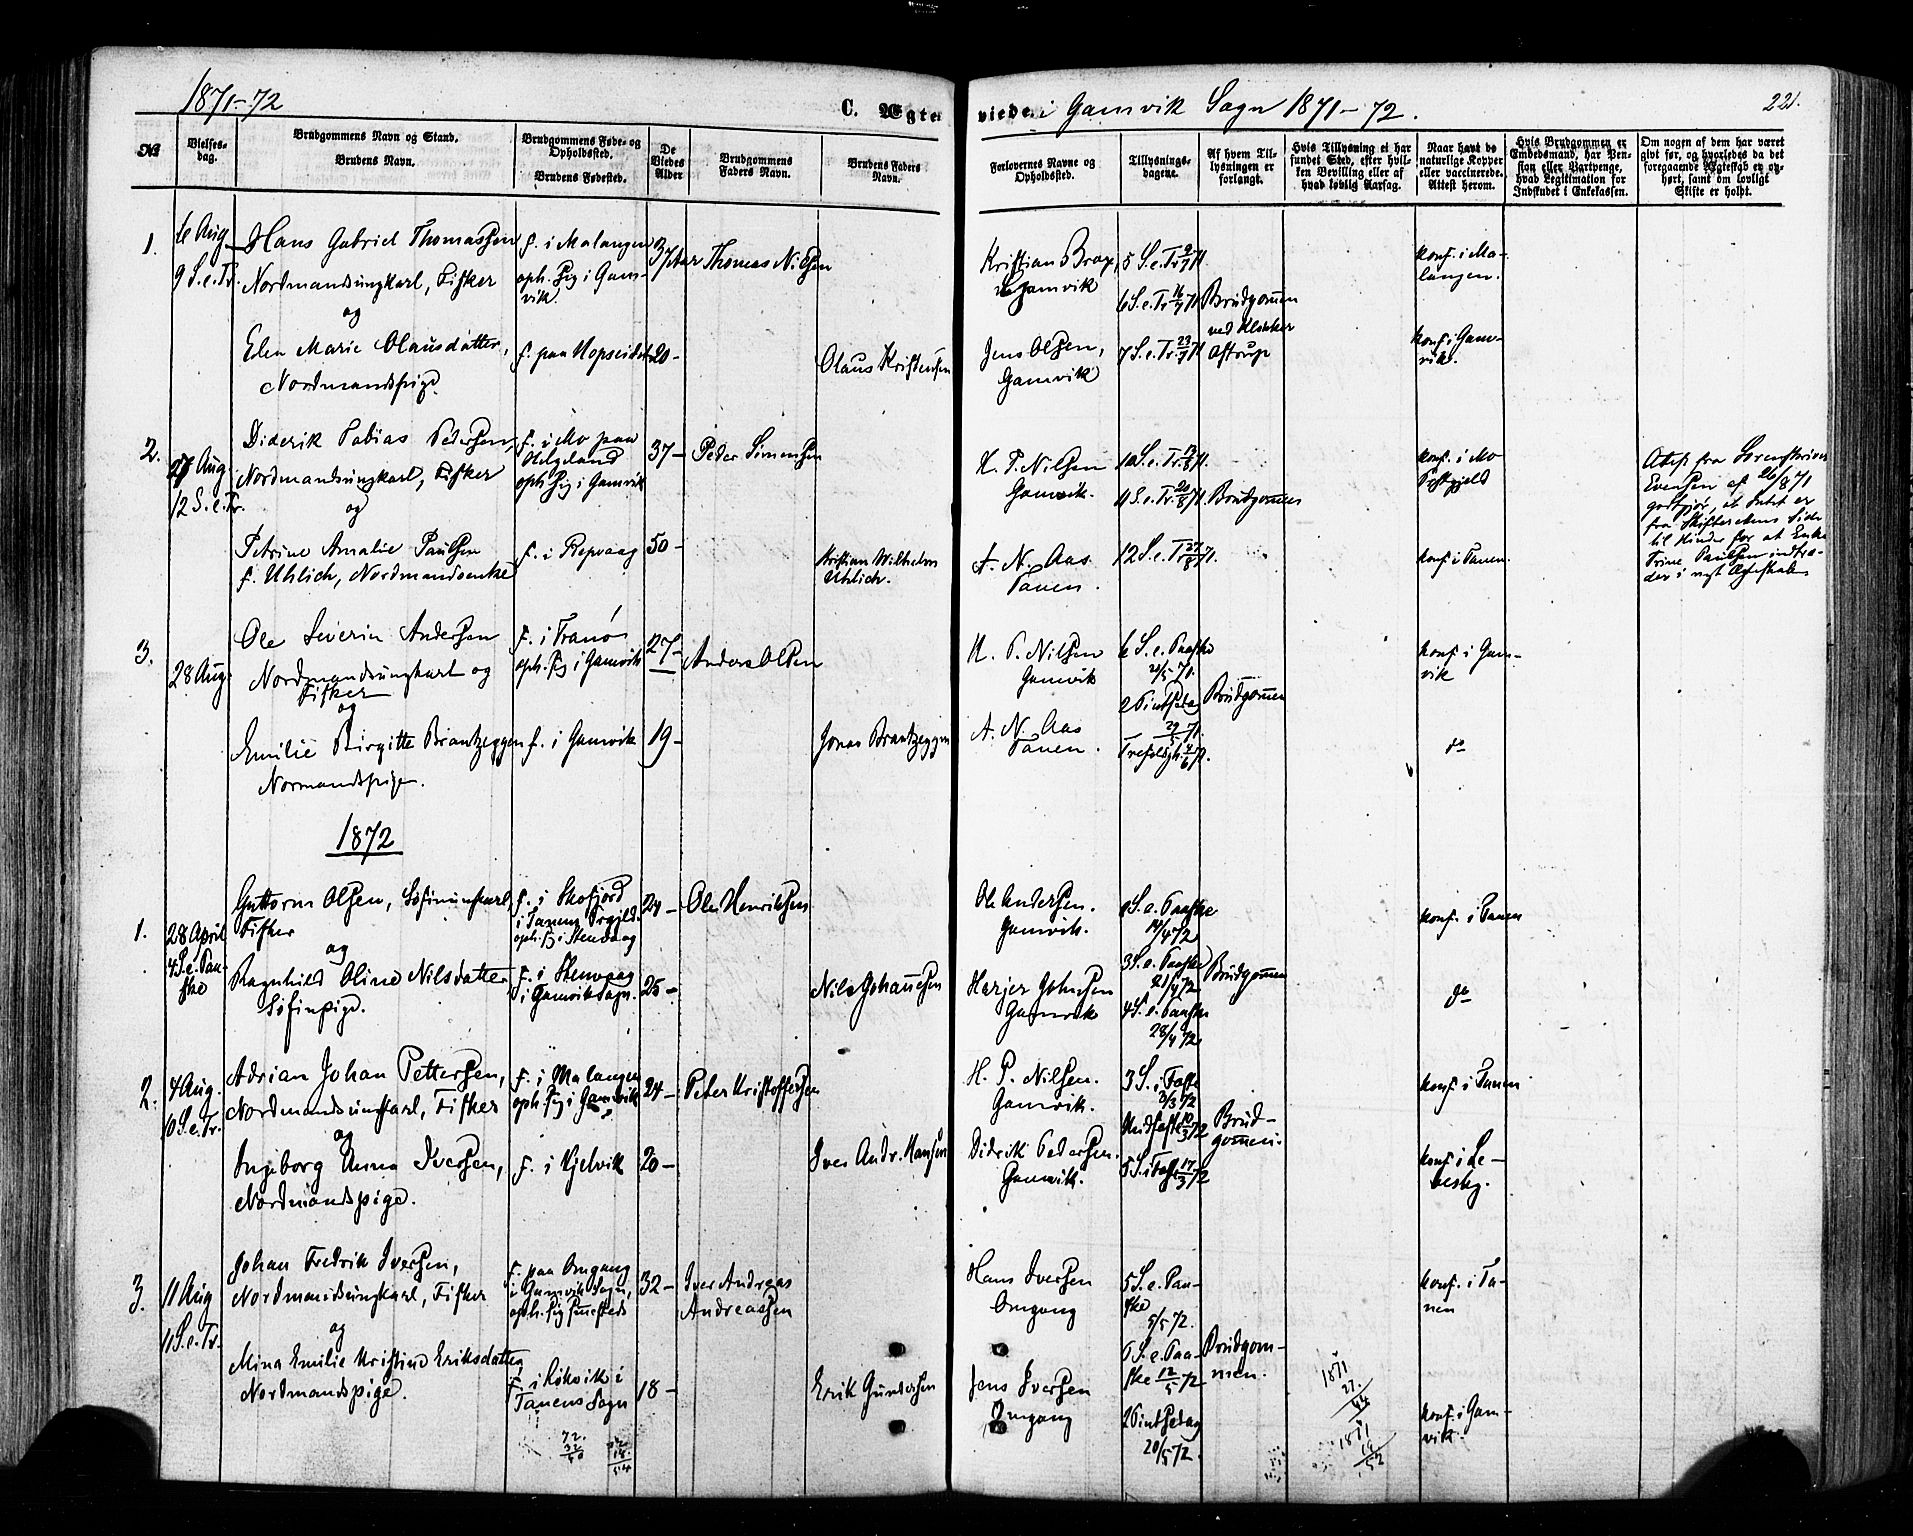 1871-72
C. Ægte
viede i Gamvik Sogn 1871-72.
221.
№
Vielses-
dag.
Brudgommens Navn og Stand.
Brudens Navn.
Brudgommens Føde- og
Opholdssted.
Brudens Fødested.
De
Viedes
Alder
Brudgommens
Faders Navn.
Brudens Faders
Navn.
Forlovernes Navne og
Opholdssted.
Tillysnings-
dagene.
Af hvem Til-
lysningen er
forlangt.
Hvis Tillysning ei har
fundet Sted, efter hvil-
ken Bevilling eller af
hvad lovlig Aarsag.
Naar havt de
naturlige Kopper
eller vaccinerede.
Attest herom.
Hvis Brudgommen er
Embedsmand, har Pen-
sion eller Vartpenge,
hvad Legitimation for
Indskudet i Enkekassen.
Om nogen af dem har været
givt før, og hvorledes da det
foregaaende Ægteskab er op-
hørt, samt om lovligt
Skifte er holdt.
1.
6 Aug
9 S.e.Tr.
Hans Gabriel Thomassen
Nordmandsungkarl, Fisker
og
Elen Marie Olausdatter,
Nordmandspige.
f. i Malangen
oph. sig i Gam-
vik
f. paa Hopseidet
37 Aar
20-
Thomas Nilsen
Olaus Kristensen
Kristian Brox,
Gamvik
Jens Olsen,
Gamvik
5 S.e.Tr. 9/7 71.
6 S.e.Tr. 16/7 71
7 S.e.Tr. 23/7 71
Brudgommen
ved Klokker
Astrup
konf. i Ma-
langen.
konf. i Gam-
vik.
2.
27 Aug.
12 S.e.Tr.
Diderik Tobias Pedersen,
Nordmandsungkarl, Fisker
og
Petrine Amalie Paulsen
f. Uhlich, Nordmandsenke
f. i Mo paa
Helgeland
oph. sig i Gamvik
f. i Repvaag
37-
50-
Peder Simonsen
Kristian Wilhelm
Uhlich.
H. P. Nilsen
Gamvik.
A. N. Aas
Tanen.
10 S.e.Tr. 13/8 71.
11 S.e.Tr. 20/8 71.
12 S.e.Tr. 27/8 71.
Brudgommen
konf. i Mo
Præstgjeld
konf. i Tanen.
Attest fra Sorenskriver
Evensen af 26/8 71
godtgjør, at Intet er
fra Skifterettens Side
til Hinder for at Enke
Trine Paulsen indtræ-
der i nyt Ægteskab.
3.
28 Aug.
Ole Severin Andersen
Nordmandsungkarl og
Fisker
og
Emilie Birgitte Brantzeggen
Normandspige.
f. i Tranø
oph. sig i Gamvik
f. i Gamvik
27-
19-
Anders Olsen
Jonas Brantzeggen
H. P. Nilsen
Gamvik
A. N. Aas
Tanen.
6 S.e. Paaske
21/5 71.
2 Pintsedag
29/5 71.
Trefoldigh. 4/6 71.
Brudgommen
konf. i Gam-
vik
do
1872
1.
28 April
4 S.e. Paa-
ske
Guttorm Olsen, Søfinungkarl
Fisker
og
Ragnhild Oline Nilsdatter
Søfinpige.
f. i Skofjord
i Tanens Prgjld.
oph. sig i Stenvaag
f. i Stenvaag
i Gamvik Sogn.
24-
25-
Ole Henriksen
Nils Johannesen
Ole Andersen.
Gamvik.
Harjer Johnsen
Gamvik
2 S.e. Paaske
14/4 72
3 S.e. Paaske
21/4 72
4 S.e. Paaske
28/4 72
Brudgommen
konf. i Tanen
do
2.
4 Aug.
10 S.e.Tr.
Adrian Johan Pettersen,
Nordmandsungkarl, Fisker
og
Ingeborg Anna Iversen,
Nordmandspige.
f. i Malangen
oph. sig i Gamvik
f. i Kjelvik
24-
20-
Peter Kristoffersen
Iver Andr. Hansen
H. P. Nilsen.
Gamvik.
Didrik Pedersen.
Gamvik.
3 S. i Faste
3/3 72
Midfaste 10/3 72
5 S. i Faste 17/3 72
Brud-
gommen.
konf. i Tanen
konf. i Le-
besby.
3.
11 Aug
11 S.e.Tr.
Johan Fredrik Iversen,
Nordmandsungkarl, Fisker
og
Mina Emilie Kristine Eriksdatter
Nordmandspige.
f. paa Omgang
i Gamvik Sogn,
oph. sig sammesteds
f. i Kokvik i
Tanens Sogn
32-
18-
Iver Andreas
Andreassen
Erik Gundersen
Hans Iversen
Omgang
Jens Iversen
Omgang
5 S.e. Paa-
ske
5/5 72.
6 S.e. Paa-
ske 12/5 72
2 Pintsedag
20/5 72.
Brudgom-
men.
konf. i Ta-
nen
konf. i Gam-
vik.
72.
32
40
72
18
54
1871
27.
44
1871
19
52